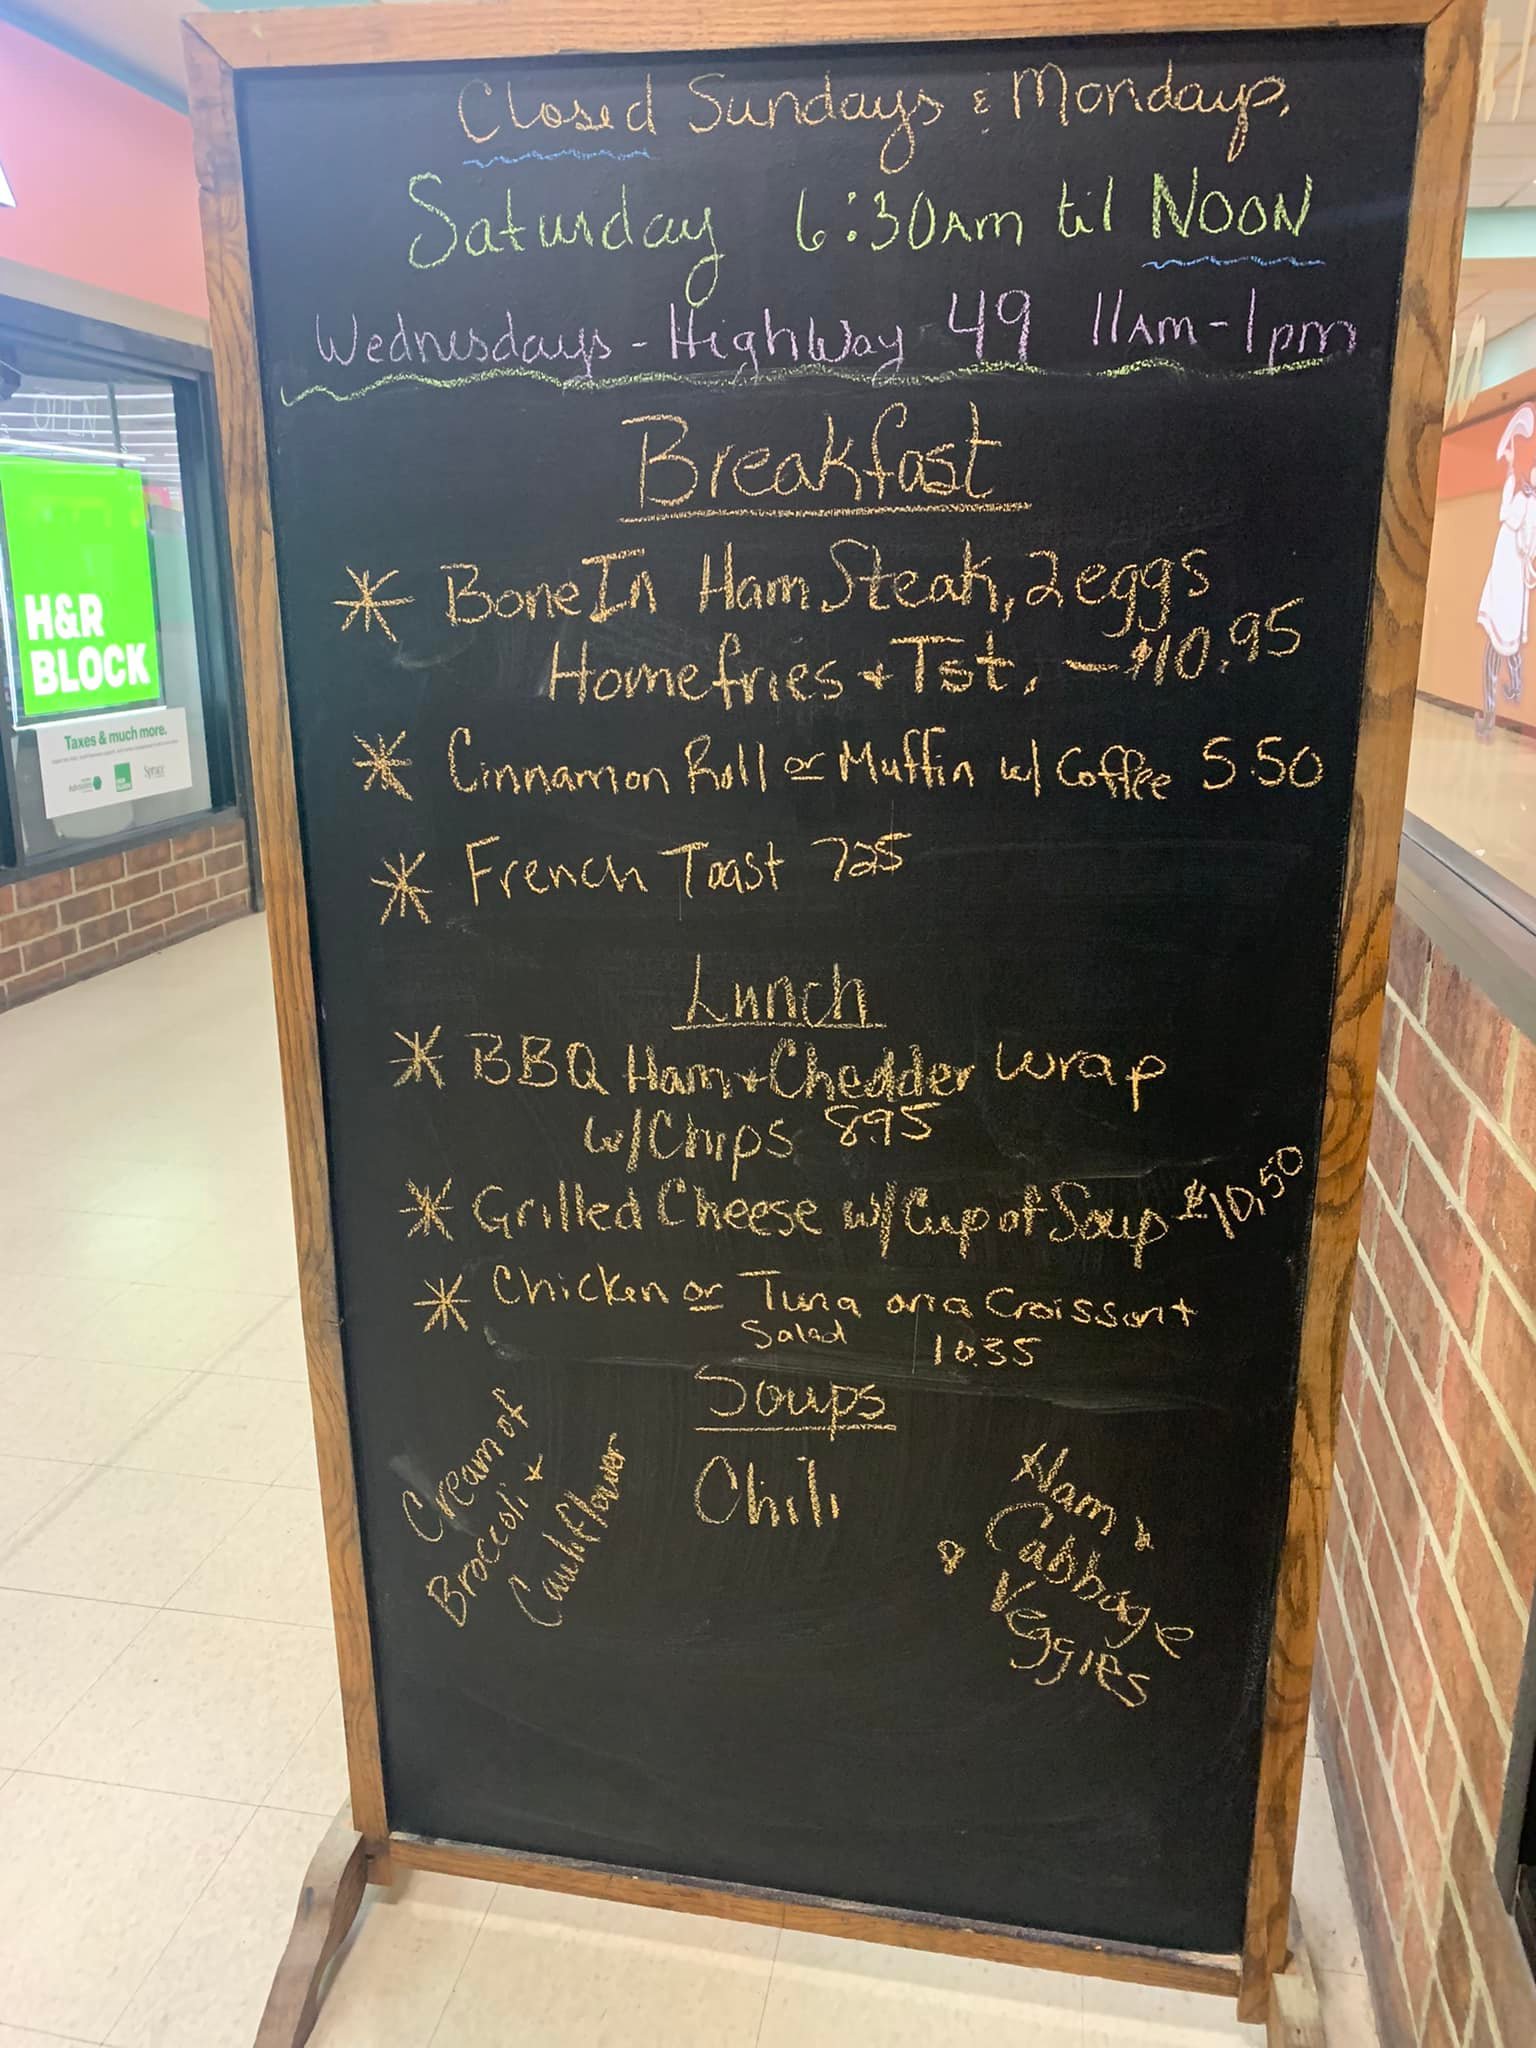 Closed Sundays & Mondays,
Saturday 6:30am til NOON
Wednesdays - Highway 49 11AM - 1pm
Breakfast
* Bone In Ham Steak, 2 eggs
Homefries + Tst. - $10.95
* Cinnamon Roll or Muffin w/ Coffee 5.50
* French Toast 725
Lunch
* BBQ Ham + Chedder wrap
w/Chips 895
* Grilled Cheese w/Cup of Soup $10.50
* Chicken or Tuna on a Croissant
Salad 10.35
Soups
Cream of
Broccoli +
Cauliflower
Chili
Ham +
Cabbage
+ Veggies
OPEN
H&R
BLOCK
Taxes & much more.
Spruce